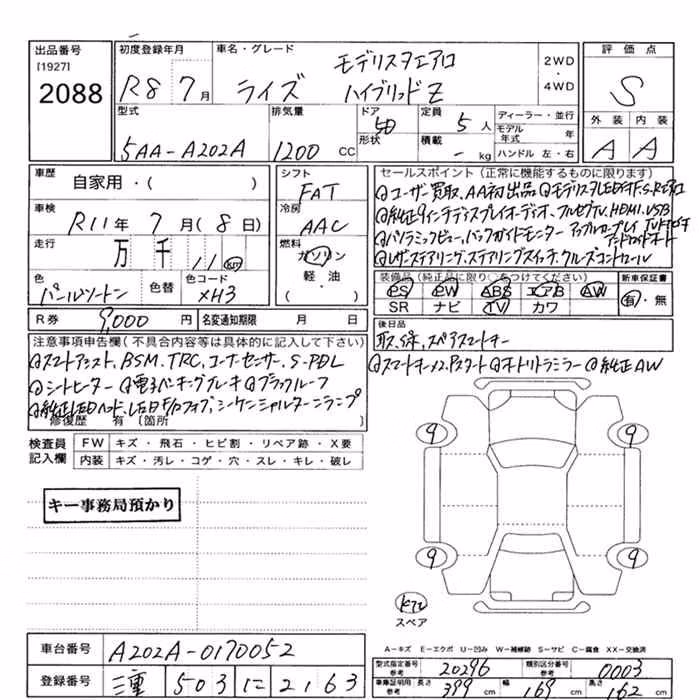 出品番号
[1927]
2088
初度登録年月
R8 7月
車名・グレード
モデリスタエアロ
ライズ ハイブリッドZ
2WD
・
4WD
評価点
S
外装 内装
A A
型式
5AA-A202A
排気量
1200 CC
ドア
5D
形状
定員
5人
積載
- kg
ディーラー・並行
モデル年式 年
ハンドル 左・右
車歴
自家用・( )
車検
R11年 7月(8日)
走行
万 千 11 km
色
パールツートン
色替
色コード
XH3
シフト
FAT
冷房
AAC
燃料
ガソリン
軽・油
( )
R券 9,000円
名変通知期限 月 日
セールスポイント(正常に機能するものに限ります)
ユーザー買取、AA初出品
純正9インチディスプレイオーディオ、フルセグTV、HDMI、USB
パノラミックビュー、バックガイドモニター
レザーステアリング、ステアリングスイッチ、クルーズコントロール
装備品(純正品に限り○をつけてください)
PS PW ABS エアB AW
SR ナビ TV カワ
新車保証書
有・無
後日品
取、保、スペアスマートキー
スマートキー×2、Pスタート オートリトラミラー 純正AW
注意事項申告欄(不具合内容等は具体的に記入して下さい)
スマートアシスト、BSM、TRC、コーナーセンサー、S-PDL
シートヒーター 電子パーキングブレーキ ブラックルーフ
純正LEDヘッド、LED F/Oフォグ、シーケンシャルターンランプ
修復歴 有 (箇所
検査員
記入欄
FW キズ・飛石・ヒビ割・リペア跡・X要
内装 キズ・汚レ・コゲ・穴・スレ・キレ・破レ
キー事務局預かり
9 9
9 9
スペア
A-キズ E-エクボ U-凹み W-補修跡 S-サビ C-腐食 XX-交換済
車台番号 A202A-0170052
登録番号 三重 503 に 2163
型式指定番号
参考
20296
類別区分番号
参考
0003
車庫証明用
参考
長さ 399 cm 幅 169 cm 高さ 162 cm